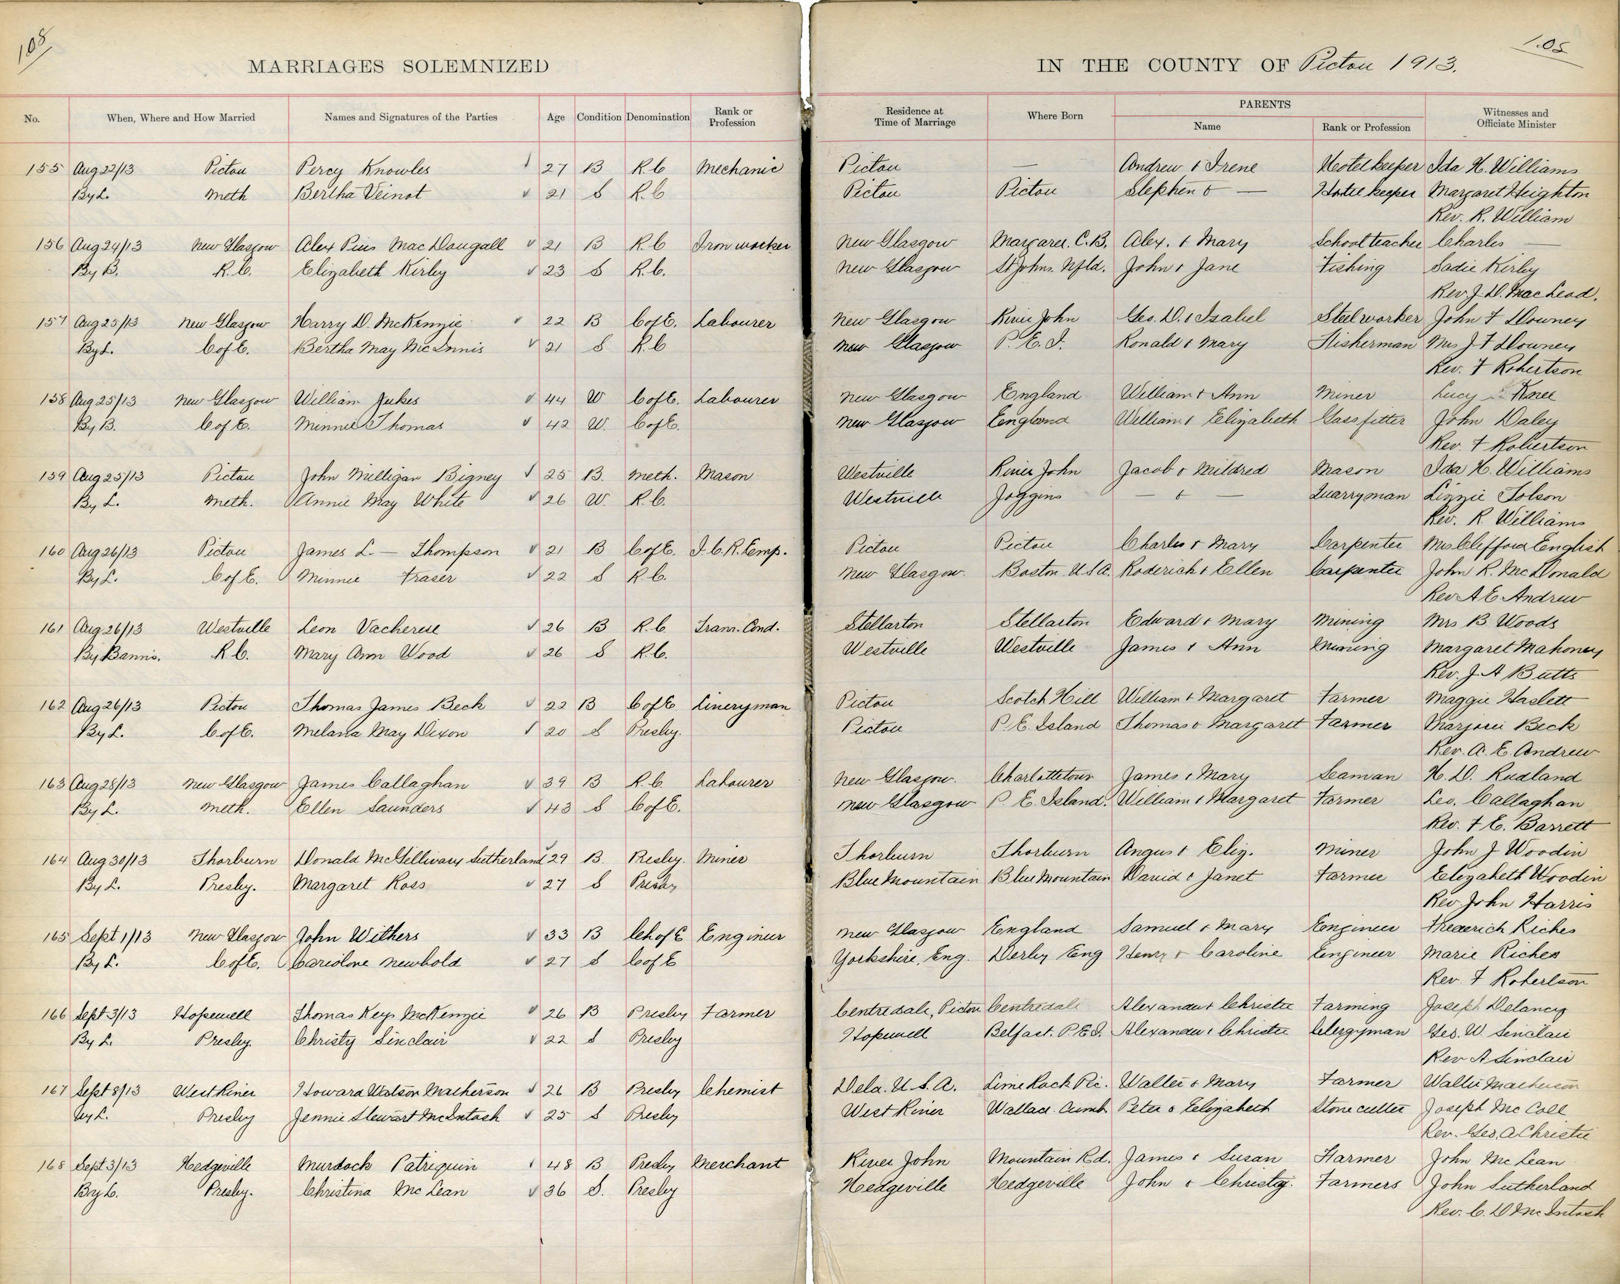 108
108
MARRIAGES SOLEMNIZED
IN THE COUNTY OF Pictou 1913.
No. When, Where and How Married Names and Signatures of the Parties Age Condition Denomination Rank or Profession Residence at Time of Marriage Where Born PARENTS Name Rank or Profession Witnesses and Officiate Minister
155 Aug 22/13 Pictou Percy Knowles 27 B R.C Mechanic Pictou — Andrew & Irene Hotel keeper Ida H. Williams
By L. Meth Bertha Veinot 21 S R.C Pictou Pictou Stephen & — Hotel keeper Margaret Heighton
Rev. R. William
156 Aug 24/13 New Glasgow Alex Pius MacDougall 21 B R.C Iron worker New Glasgow Margaree. C.B. Alex. & Mary School teacher Charles —
By B. R.C. Elizabeth Kirby 23 S R.C. New Glasgow St Johns. Nfld. John & Jane Fishing Sadie Kirby
Rev. J. D. MacLeod.
157 Aug 25/13 New Glasgow Harry D. McKenzie 22 B C of E. Labourer New Glasgow River John Geo. D. & Isabel Steel worker John F Downey
By L. C of E. Bertha May McInnis 21 S R.C New Glasgow P. E. I. Ronald & Mary Fisherman Mrs J. F Downey
Rev. F Robertson
158 Aug 25/13 New Glasgow William Jukes 44 W C of E. Labourer New Glasgow England William & Ann Miner Lucy
By B. C of E. Minnie Thomas 42 W. C of E. New Glasgow England William & Elizabeth Gassfitter John Daley
Rev. F Robertson
159 Aug 25/13 Pictou John Milligan Bigney 25 B. Meth. Mason Westville River John Jacob & Mildred Mason Ida H. Williams
By L. Meth. Annie May White 26 W. R.C. Westville Joggins — & — Quarryman Lizzie Tolson
Rev. R Williams
160 Aug 26/13 Pictou James L. — Thompson 21 B C of E. I.C.R. Emp. Pictou Pictou Charles & Mary Carpenter Mrs Clifford English
By L. C of E. Minnie Fraser 22 S R.C. New Glasgow Boston U.S.A. Roderick & Ellen Carpenter John R. McDonald
Rev A E Andrew
161 Aug 26/13 Westville Leon Vacherese 26 B R.C Tram. Cond. Stellarton Stellarton Edward & Mary Mining Mrs B Woods
By Banns. R.C. Mary Ann Wood 26 S R.C. Westville Westville James & Ann Mining Margaret Mahoney
Rev. J A Butts
162 Aug 26/13 Pictou Thomas James Beck 22 B C of E Lineryman Pictou Scotch Hill William & Margaret Farmer Maggie Haslett
By L. C of E. Melana May Dixon 20 S Presby. Pictou P. E. Island Thomas & Margaret Farmer Marjorie Beck
Rev. A. E. Andrew
163 Aug 28/13 New Glasgow James Callaghan 39 B R.C Labourer New Glasgow. Charlottetown James & Mary Seaman H. D. Rudland
By L. Meth. Ellen Saunders 43 S C of E. New Glasgow P E. Island. William & Margaret Farmer Leo. Callaghan
Rev. F. E. Barrett
164 Aug 30/13 Thorburn Donald McGillivary Sutherland 29 B. Presby. Miner Thorburn Thorburn Angus & Eliz. Miner John J Woodin
By L. Presby. Margaret Ross 27 S Presby Blue Mountain Blue Mountain David & Janet Farmer Elizabeth Woodin
Rev John Harris
165 Sept 1/13 New Glasgow John Withers 33 B Ch of E Engineer New Glasgow England Samuel & Mary Engineer Frederich Riches
By L. C of E. Caroline Newbold 27 S C of E Yorkshire, Eng. Derby Eng Henry & Caroline Engineer Marie Riches
Rev F Robertson
166 Sept 3/13 Hopewell Thomas Key McKenzie 26 B Presby Farmer Centredale, Pictou Centredale Alexander & Christie Farming Joseph Delancy
By L. Presby. Christy Sinclair 22 S Presby Hopewell Belfast. P.E.I. Alexander & Christie Clergyman Geo. W Sinclair
Rev A Sinclair
167 Sept 8/13 West River Howard Watson Matherson 26 B Presby Chemist Dela. U.S.A. Lime Rock Pic. Walter & Mary Farmer Walter Matheson
By L. Presby Jennie Stewart McIntosh 25 S Presby West River Wallace Cumb. Peter & Elizabeth Stone cutter Joseph McColl
Rev. Geo. A Christie
168 Sept 3/13 Hedgeville Murdock Patriquin 48 B Presby Merchant River John Mountain Rd. James & Susan Farmer John McLean
By L. Presby. Christina McLean 36 S. Presby Hedgeville Hedgeville John & Christy. Farmers John Sutherland
Rev. C. D McIntosh